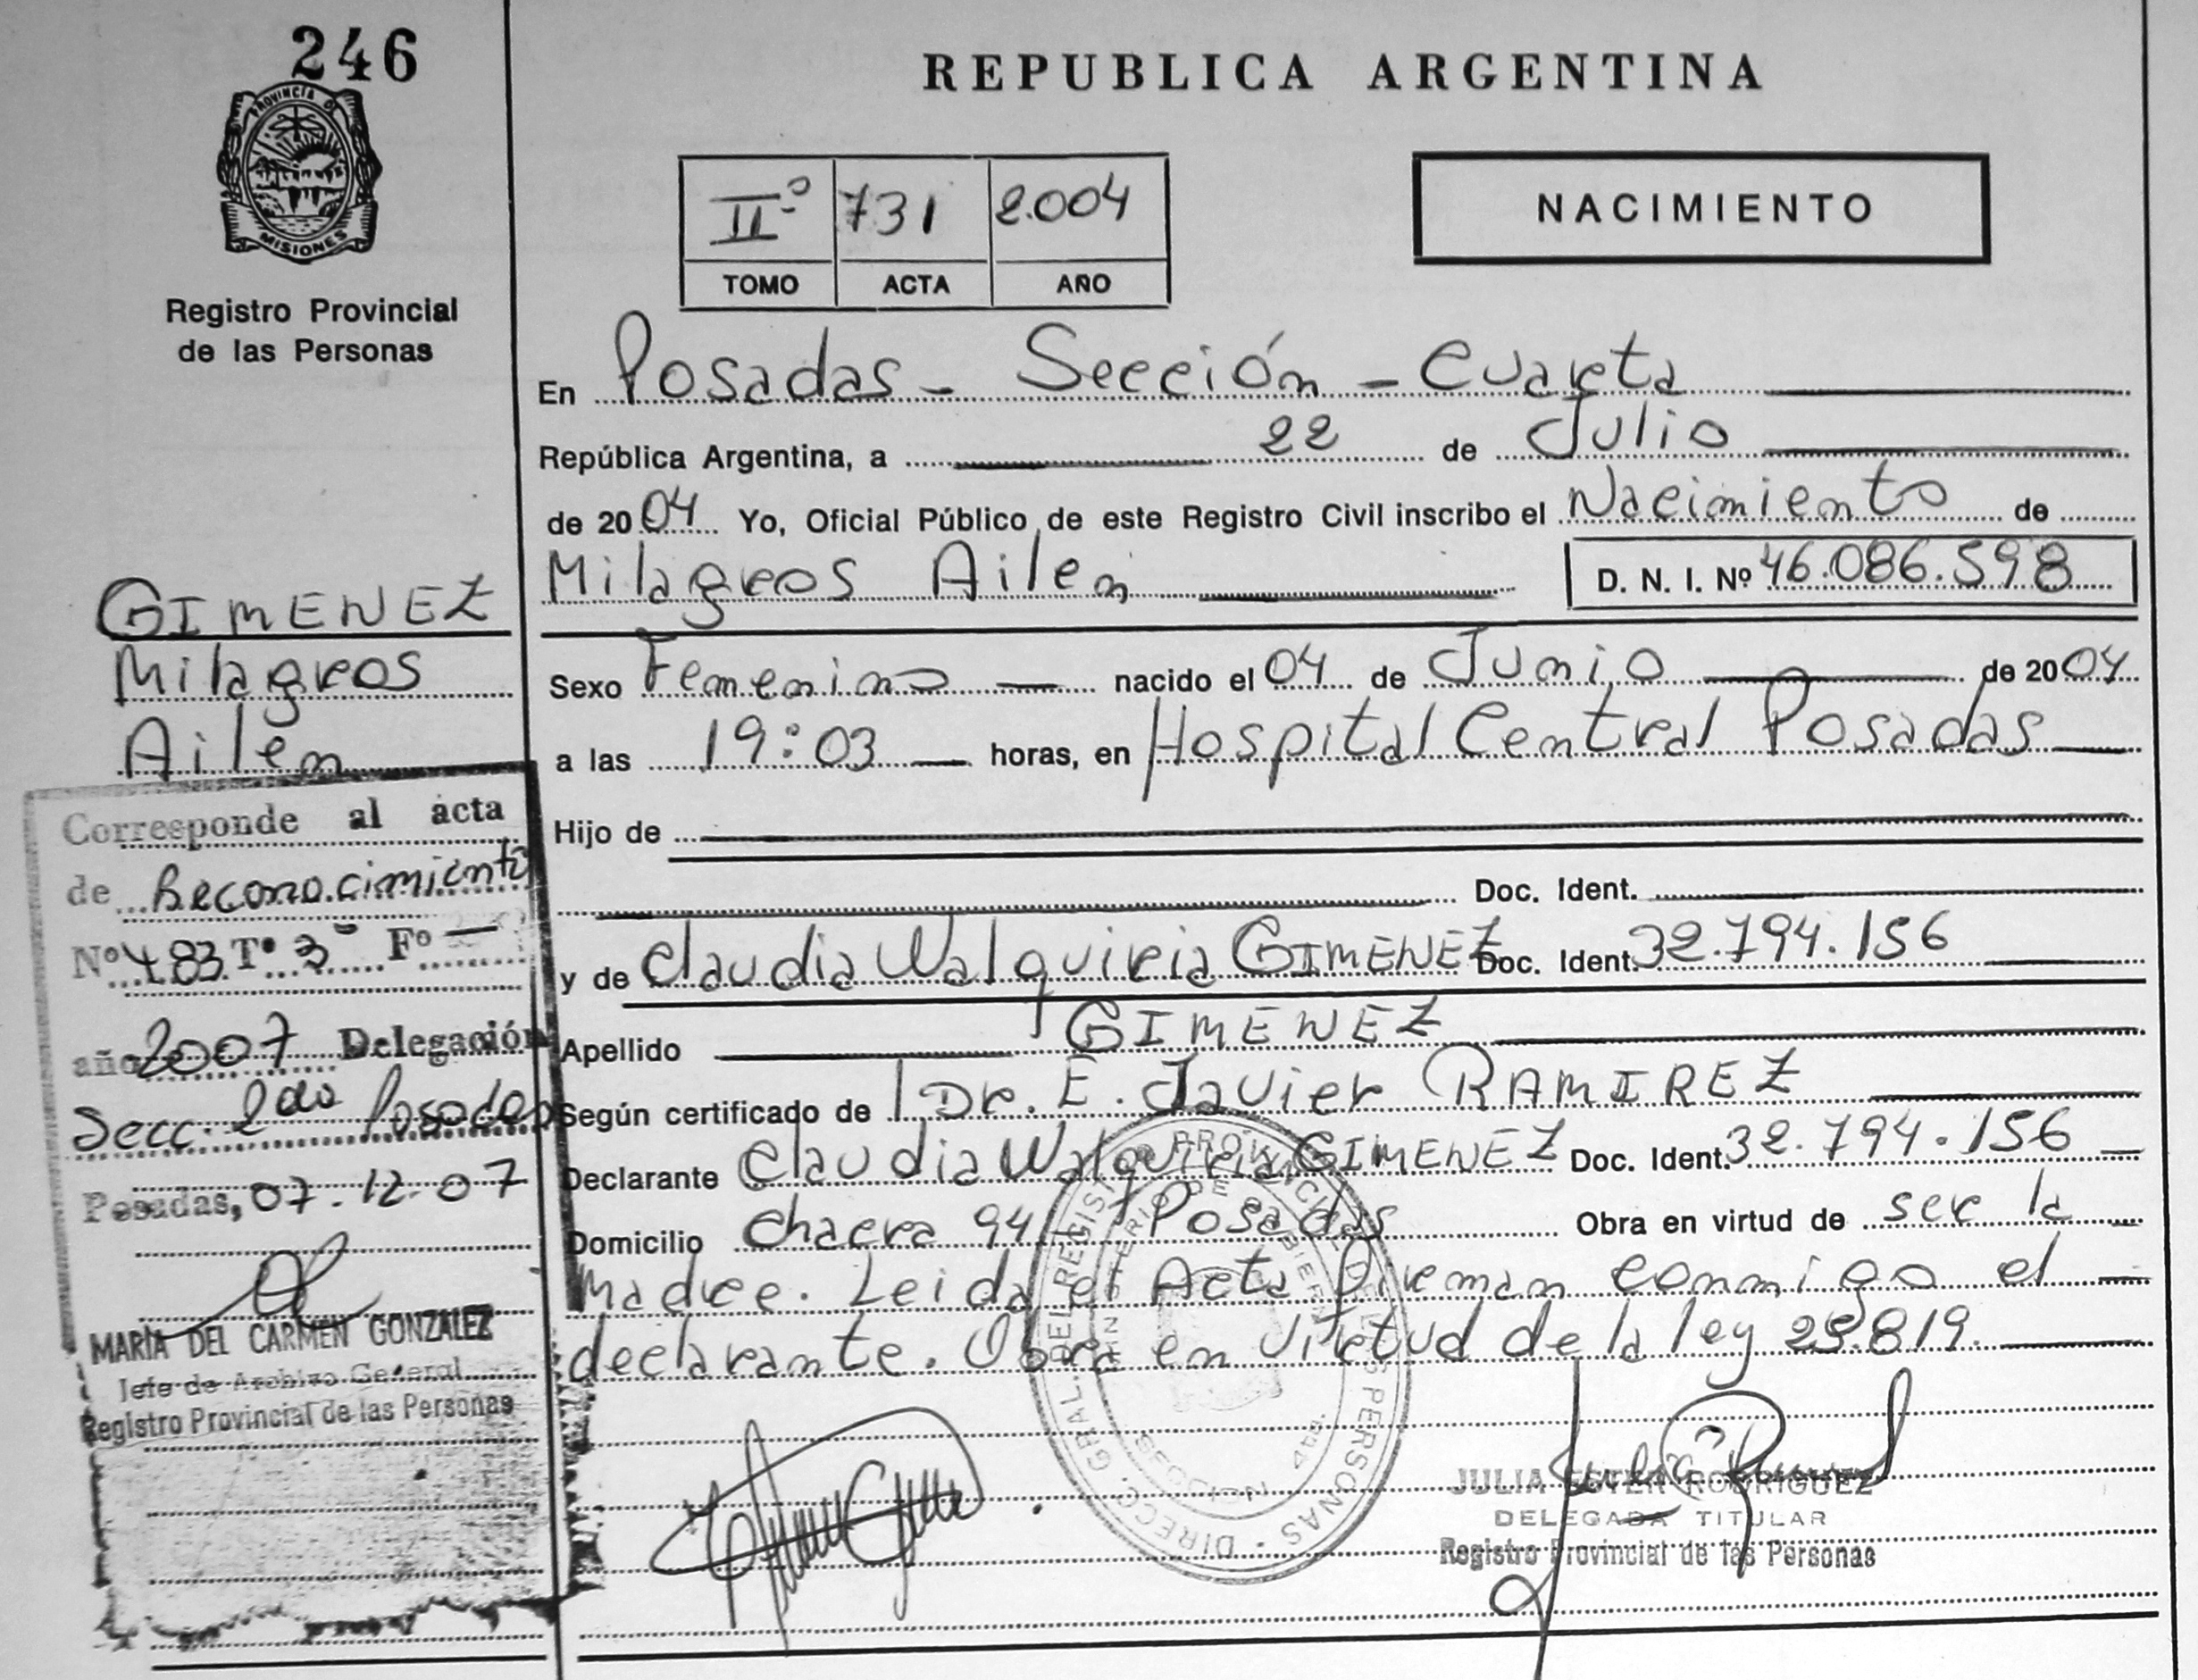 246
PROVINCIA DE
MISIONES
Registro Provincial
de las Personas
GIMENEZ
Milagros
Ailen
Corresponde al acta
de Reconocimiento
Nº 483 Tº 3º Fº —
año 2007 Delegación
Secc. 2da Posadas
Posadas, 07.12.07
MARIA DEL CARMEN GONZALEZ
Jefe de Archivo General
Registro Provincial de las Personas
REPUBLICA ARGENTINA
IIº 731 2.004
TOMO ACTA AÑO
NACIMIENTO
En Posadas - Sección - Cuarta
República Argentina, a 22 de Julio
de 2004 Yo, Oficial Público de este Registro Civil inscribo el Nacimiento de
Milagros Ailen D. N. I. Nº 46.086.598
Sexo Femenino — nacido el 04 de Junio de 2004
a las 19:03 — horas, en Hospital Central Posadas
Hijo de
Doc. Ident.
y de Claudia Walquiria GIMENEZ Doc. Ident. 32.794.156
Apellido GIMENEZ
Según certificado de Dr. E. Javier RAMIREZ
Declarante Claudia Walquiria GIMENEZ Doc. Ident. 32.794.156
Domicilio Chacra 94 Posadas Obra en virtud de ser la
Madre. Leida el Acta Firman conmigo el
declarante. Obra en virtud de la ley 25.819.
DIRECC. GRAL. DEL REGISTRO PROVINCIAL DE LAS PERSONAS
MINISTERIO DE GOBIERNO
4ta.
JULIA ESTER RODRIGUEZ
DELEGADA TITULAR
Registro Provincial de las Personas